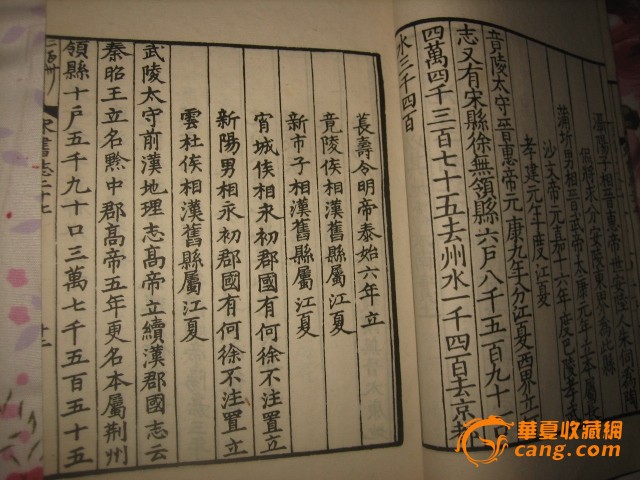 蒲圻男相晉武帝太康元年立本屬長
沙文帝元嘉十六年度巴陵孝武
孝建元年度江夏
竟陵太守晉惠帝元康九年分江夏西界立
志又有宋縣徐無領縣六戶八千五百九十一口
四萬四千三百七十五去州水一千四百去京都
水三千四百
萇壽令明帝泰始六年立
竟陵侯相漢舊縣屬江夏
新市子相漢舊縣屬江夏
宵城侯相永初郡國有何徐不注置立
新陽男相永初郡國有何徐不注置立
雲杜侯相漢舊縣屬江夏
武陵太守前漢地理志高帝立續漢郡國志云
秦昭王立名黔中郡高帝五年更名本屬荆州
領縣十戶五千九十口三萬七千五百五十五
宋書志二十七
華夏收藏網
cang.com